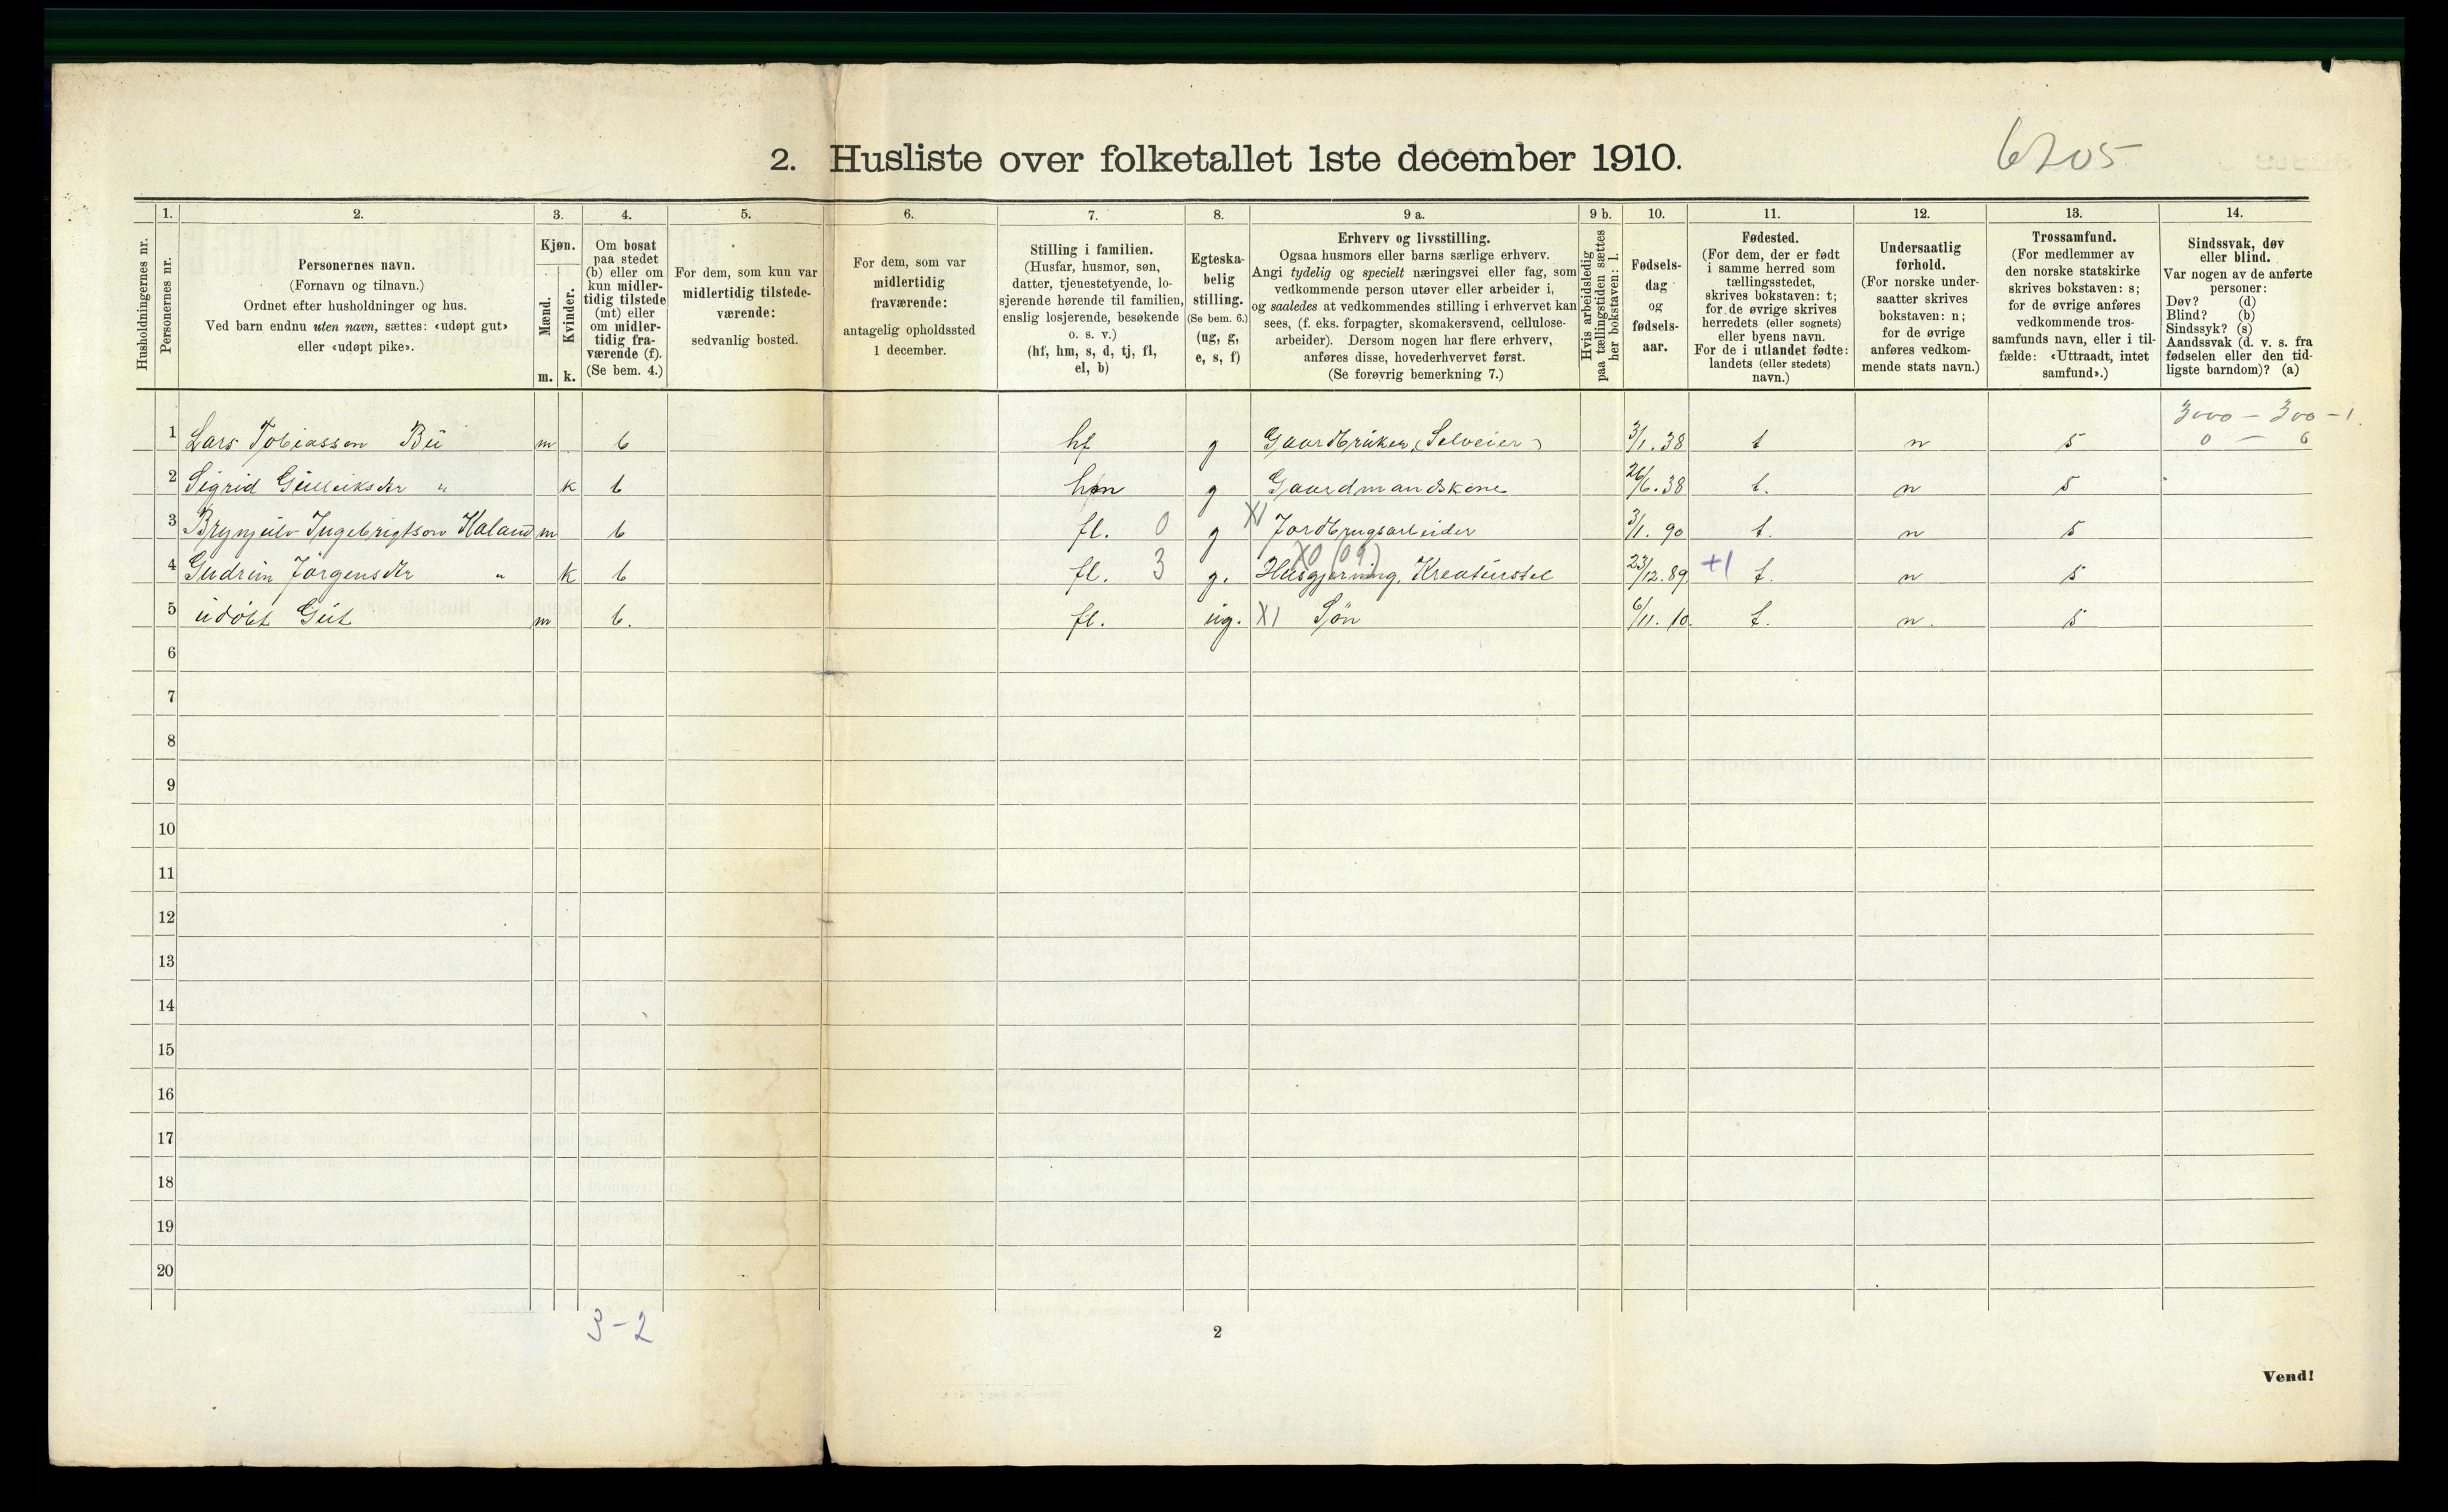 2. Husliste over folketallet 1ste december 1910.
6705
Husholdningernes nr.
1.
Personernes nr.
2.
Personernes navn.
(Fornavn og tilnavn.)
Ordnet efter husholdninger og hus.
Ved barn endnu uten navn, sættes: «udøpt gut»
eller «udøpt pike».
3.
Kjøn.
Mænd.
Kvinder.
m. k.
4.
Om bosat
paa stedet
(b) eller om
kun midler-
tidig tilstede
(mt) eller
om midler-
tidig fra-
værende (f).
(Se bem. 4.)
5.
For dem, som kun var
midlertidig tilstede-
værende:
sedvanlig bosted.
6.
For dem, som var
midlertidig
fraværende:
antagelig opholdssted
1 december.
7.
Stilling i familien.
(Husfar, husmor, søn,
datter, tjenestetyende, lo-
sjerende hørende til familien,
enslig losjerende, besøkende
o. s. v.)
(hf, hm, s, d, tj, fl,
el, b)
8.
Egteska-
belig
stilling.
(Se bem. 6.)
(ug, g,
e, s, f)
9 a.
Erhverv og livsstilling.
Ogsaa husmors eller barns særlige erhverv.
Angi tydelig og specielt næringsvei eller fag, som
vedkommende person utøver eller arbeider i,
og saaledes at vedkommendes stilling i erhvervet kan
sees, (f. eks. forpagter, skomakersvend, cellulose-
arbeider). Dersom nogen har flere erhverv,
anføres disse, hovederhvervet først.
(Se forøvrig bemerkning 7.)
9 b.
Hvis arbeidsledig
paa tællingstiden sættes
her bokstaven: l.
10.
Fødsels-
dag
og
fødsels-
aar.
11.
Fødested.
(For dem, der er født
i samme herred som
tællingsstedet,
skrives bokstaven: t;
for de øvrige skrives
herredets (eller sognets)
eller byens navn.
For de i utlandet fødte:
landets (eller stedets)
navn.)
12.
Undersaatlig
forhold.
(For norske under-
saatter skrives
bokstaven: n;
for de øvrige
anføres vedkom-
mende stats navn.)
13.
Trossamfund.
(For medlemmer av
den norske statskirke
skrives bokstaven: s;
for de øvrige anføres
vedkommende tros-
samfunds navn, eller i til-
fælde: «Uttraadt, intet
samfund».)
14.
Sindssvak, døv
eller blind.
Var nogen av de anførte
personer:
Døv? (d)
Blind? (b)
Sindssyk? (s)
Aandssvak (d. v. s. fra
fødselen eller den tid-
ligste barndom)? (a)
3000 – 300 – 1
1 Lars Tobiassen Bu m b hf g Gaardbruker, (Selveier) 3/1. 38 t n s 0 – 6
2 Sigrid Gulleiksdtr " k b hm g Gaardmandskone 26/6. 38 t. n s
3 Brynjulv Ingebrigtson Haland m b fl. 0 g XI Jordbrugsarbeider 3/1. 90 t. n s
X0 (09)
4 Gudrun Jörgensdtr " k b fl. 3 g. Husgjerning, Kreaturstel 23/12. 89 +1 t. n s
5 udöbt Gut m b. fl. ug. XI Sön 6/11. 10. t. n. s
6
7
8
9
10
11
12
13
14
15
16
17
18
19
20
3-2
2
Vend!